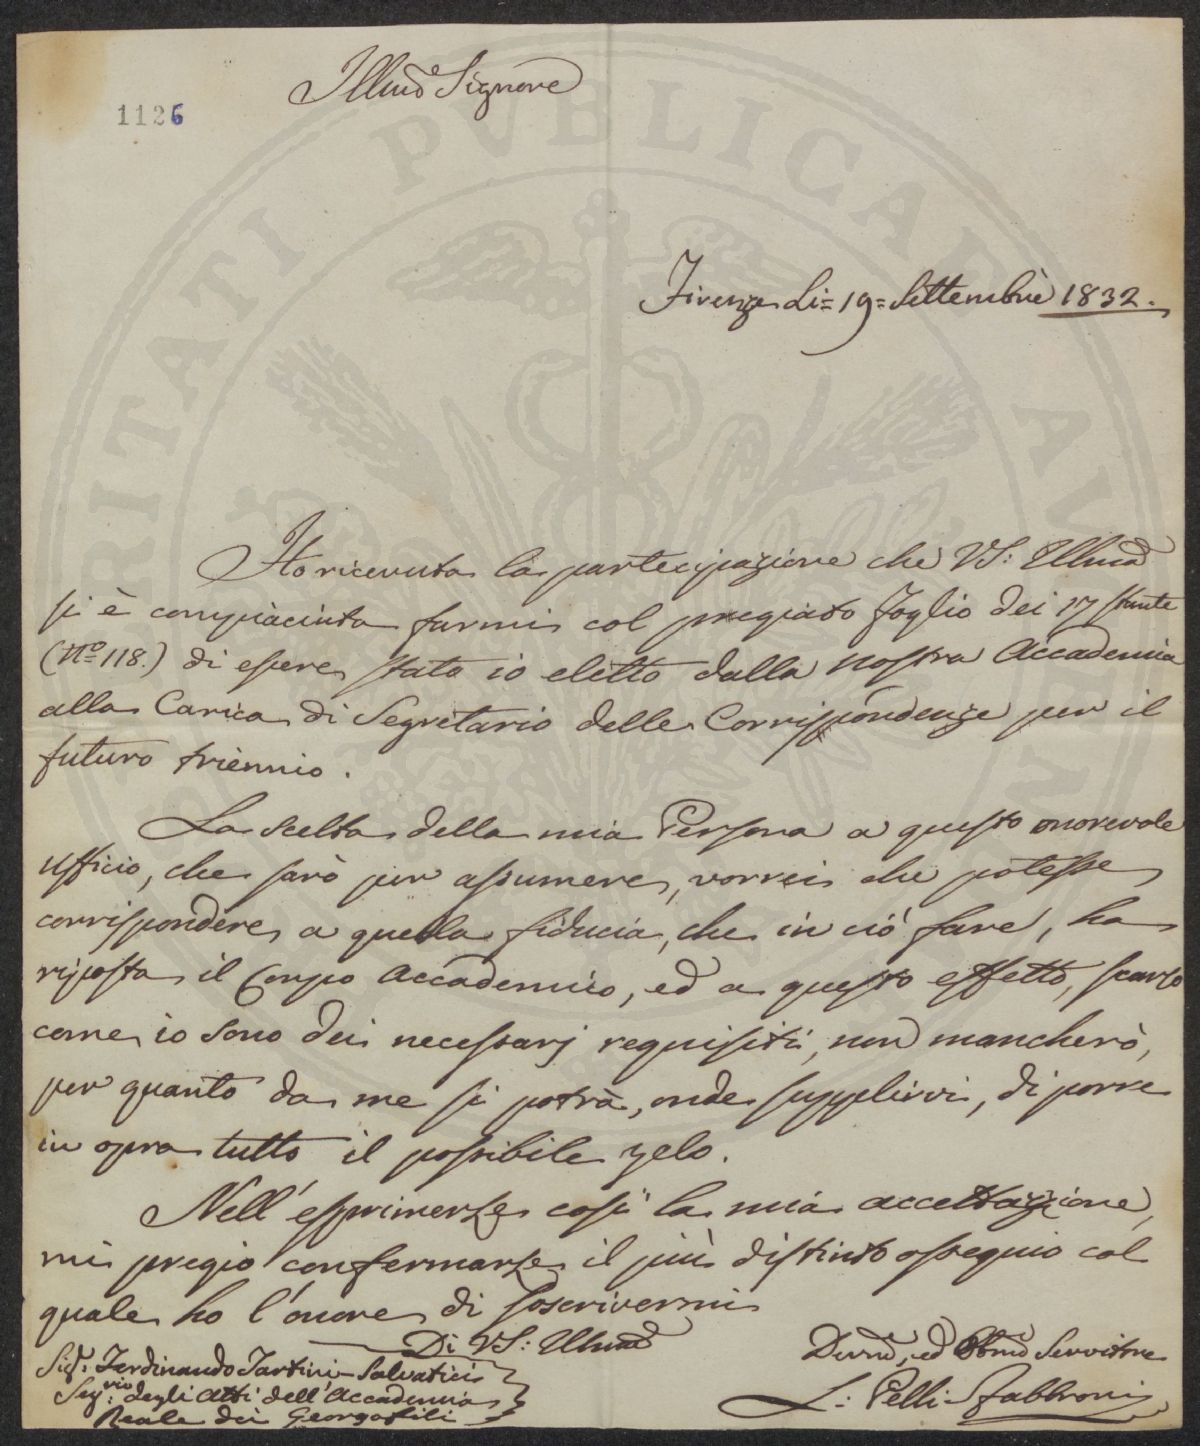 Illmo Signore
1126
Firenze Li = 19 = Settembre 1832.
Ho ricevuta la partecipazione che VS: Illma
si è compiaciuta farmi col pregiato foglio dei 17 stante
(No 118.) di essere stato io eletto dalla nostra Accademia
alla Carica di Segretario delle Corrispondenze per il
futuro triennio.
La scelta della mia Persona a questo onorevole
Ufficio, che sarò per assumere, vorrei che potesse
corrispondere a quella fiducia, che in ciò fare, ha
riposta il Corpo Accademico, ed a questo effetto, scarso
come io sono dei necessarj requisiti, non mancherò,
per quanto da me si potrà, onde supplirvi, di porre
in opra tutto il possibile zelo.
Nell'esprimerle così la mia accettazione,
mi pregio confermarle il più distinto ossequio col
quale ho l'onore di soscrivermi
Di VS: Illma
Sigr. Ferdinando Tartini-Salvatici
Segrio: degli Atti dell'Accademia
Reale dei Georgofili
Devmo, ed Obbmo Servitore
L: Pelli-Fabbroni
PUBLICAE